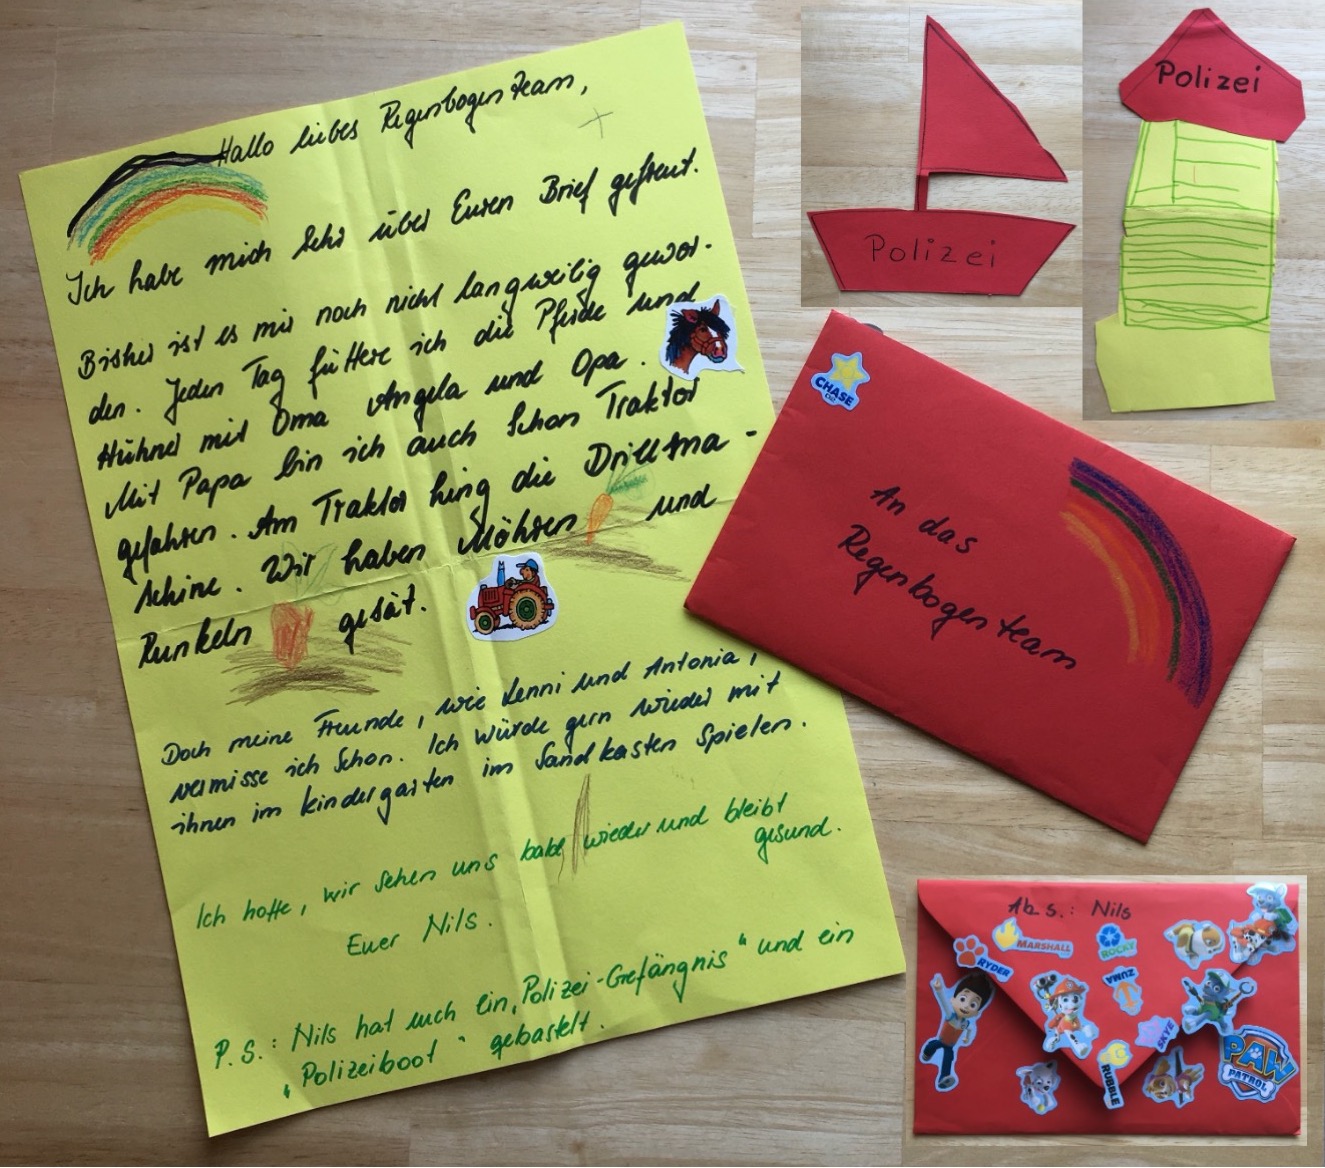 Hallo liebes Regenbogenteam,
Ich habe mich sehr über Euren Brief gefreut.
Bisher ist es mir noch nicht langweilig gewor-
den. Jeden Tag füttere ich die Pferde und
Hühner mit Oma Angela und Opa.
Mit Papa bin ich auch schon Traktor
gefahren. Am Traktor hing die Drillma-
schine. Wir haben Möhren und
Runkeln gesät.
Doch meine Freunde, wie Lenni und Antonia,
vermisse ich schon. Ich würde gern wieder mit
ihnen im Kindergarten im Sandkasten spielen.
Ich hoffe, wir sehen uns bald wieder und bleibt
gesund.
Euer Nils.
P.S.: Nils hat euch ein „Polizei-Gefängnis" und ein
„Polizeiboot" gebastelt.
Polizei
Polizei
CHASE
An das
Regenbogenteam
Abs.: Nils
MARSHALL
ROCKY
RYDER
ZUMA
SKYE
RUBBLE
PAW
PATROL